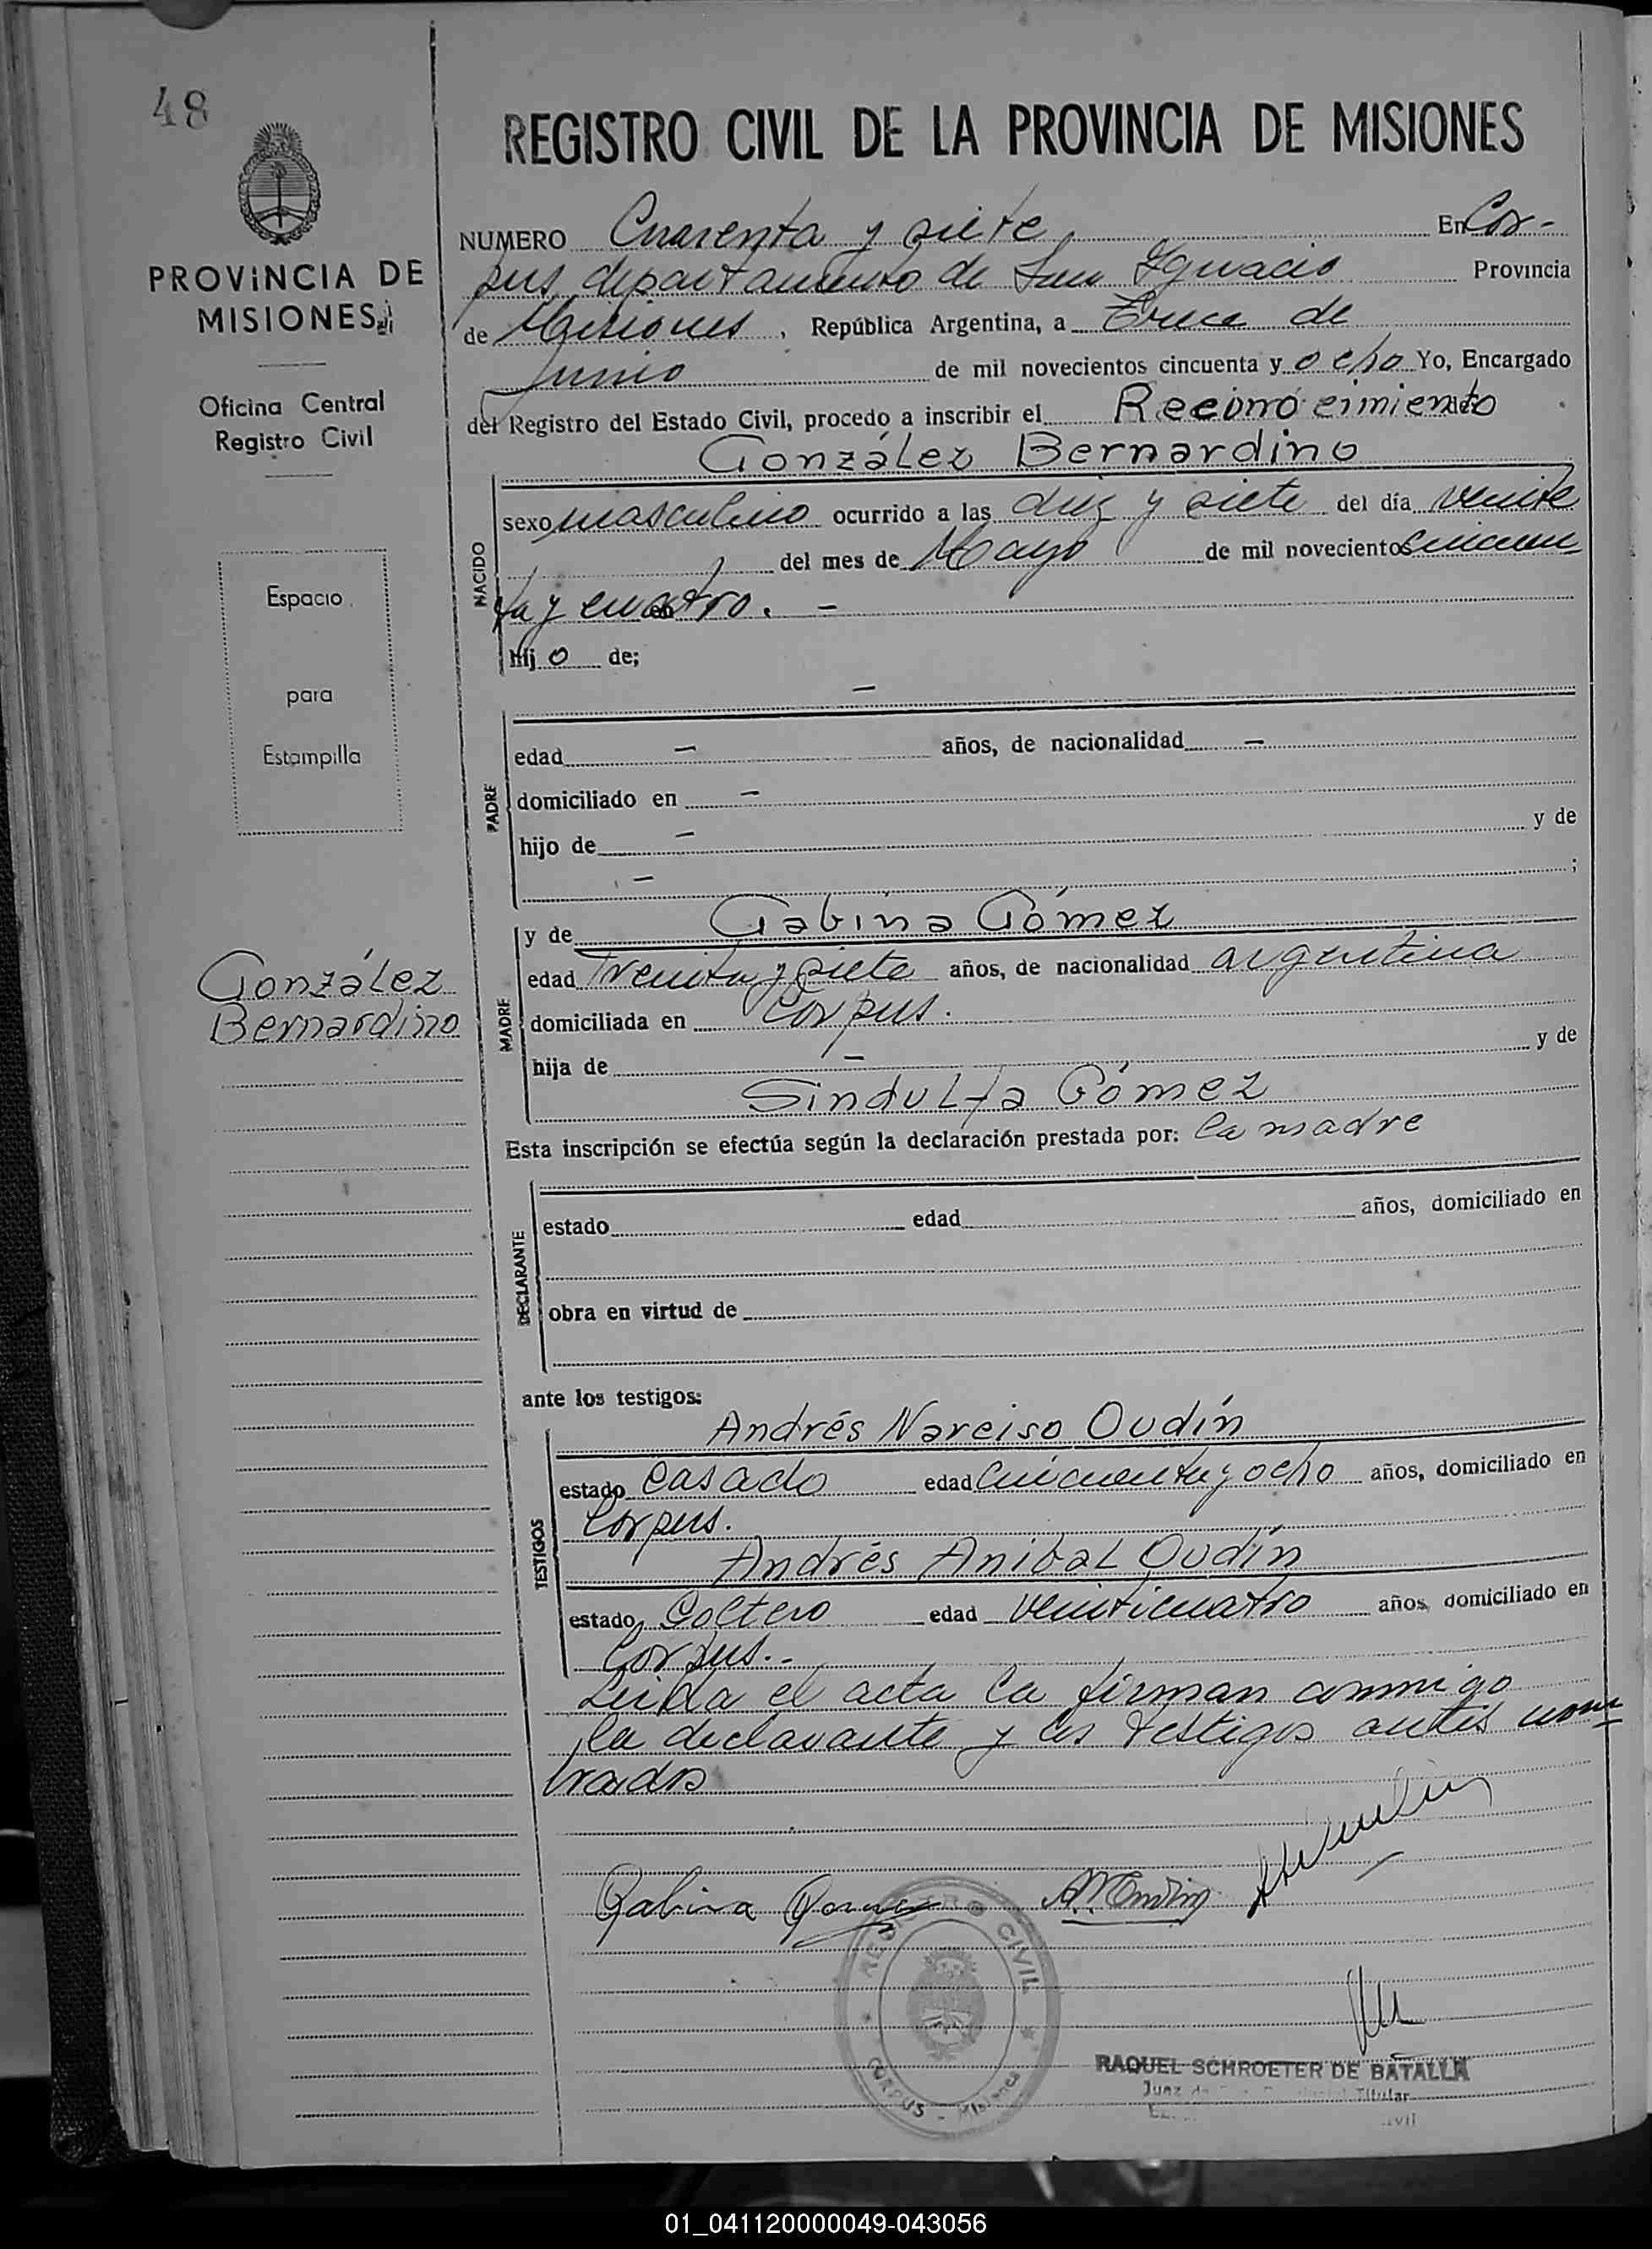 48
REGISTRO CIVIL DE LA PROVINCIA DE MISIONES
PROVINCIA DE
MISIONES
Oficina Central
Registro Civil
Espacio
para
Estampilla
González
Bernardino
NUMERO Cuarenta y siete En Cor-
pus, departamento de San Ignacio Provincia
de Misiones, República Argentina, a Trece de
Junio de mil novecientos cincuenta y ocho Yo, Encargado
del Registro del Estado Civil, procedo a inscribir el Reconocimiento
González Bernardino
NACIDO
sexo masculino ocurrido a las diez y siete del día veinte
del mes de Mayo de mil novecientos cincuen
ta y cuatro. -
hij o de;
-
PADRE
edad - años, de nacionalidad -
domiciliado en -
hijo de - y de
- ;
MADRE
y de Gabina Gómez
edad Treinta y siete años, de nacionalidad argentina
domiciliada en Corpus.
hija de - y de
Sindulfa Gómez
Esta inscripción se efectúa según la declaración prestada por: la madre
DECLARANTE
estado edad años, domiciliado en
obra en virtud de
ante los testigos:
TESTIGOS
Andrés Narciso Oudín
estado Casado edad Cincuenta y ocho años, domiciliado en
Corpus.
Andrés Anibal Oudín
estado Soltero edad veinticuatro años, domiciliado en
Corpus.-
Leída el acta la firman conmigo
la declarante y los testigos antes nom-
brados
Gabina Gomez
REGISTRO CIVIL
CORPUS - Misiones
RAQUEL SCHROETER DE BATALLA
Juez de Titular
01_041120000049-043056